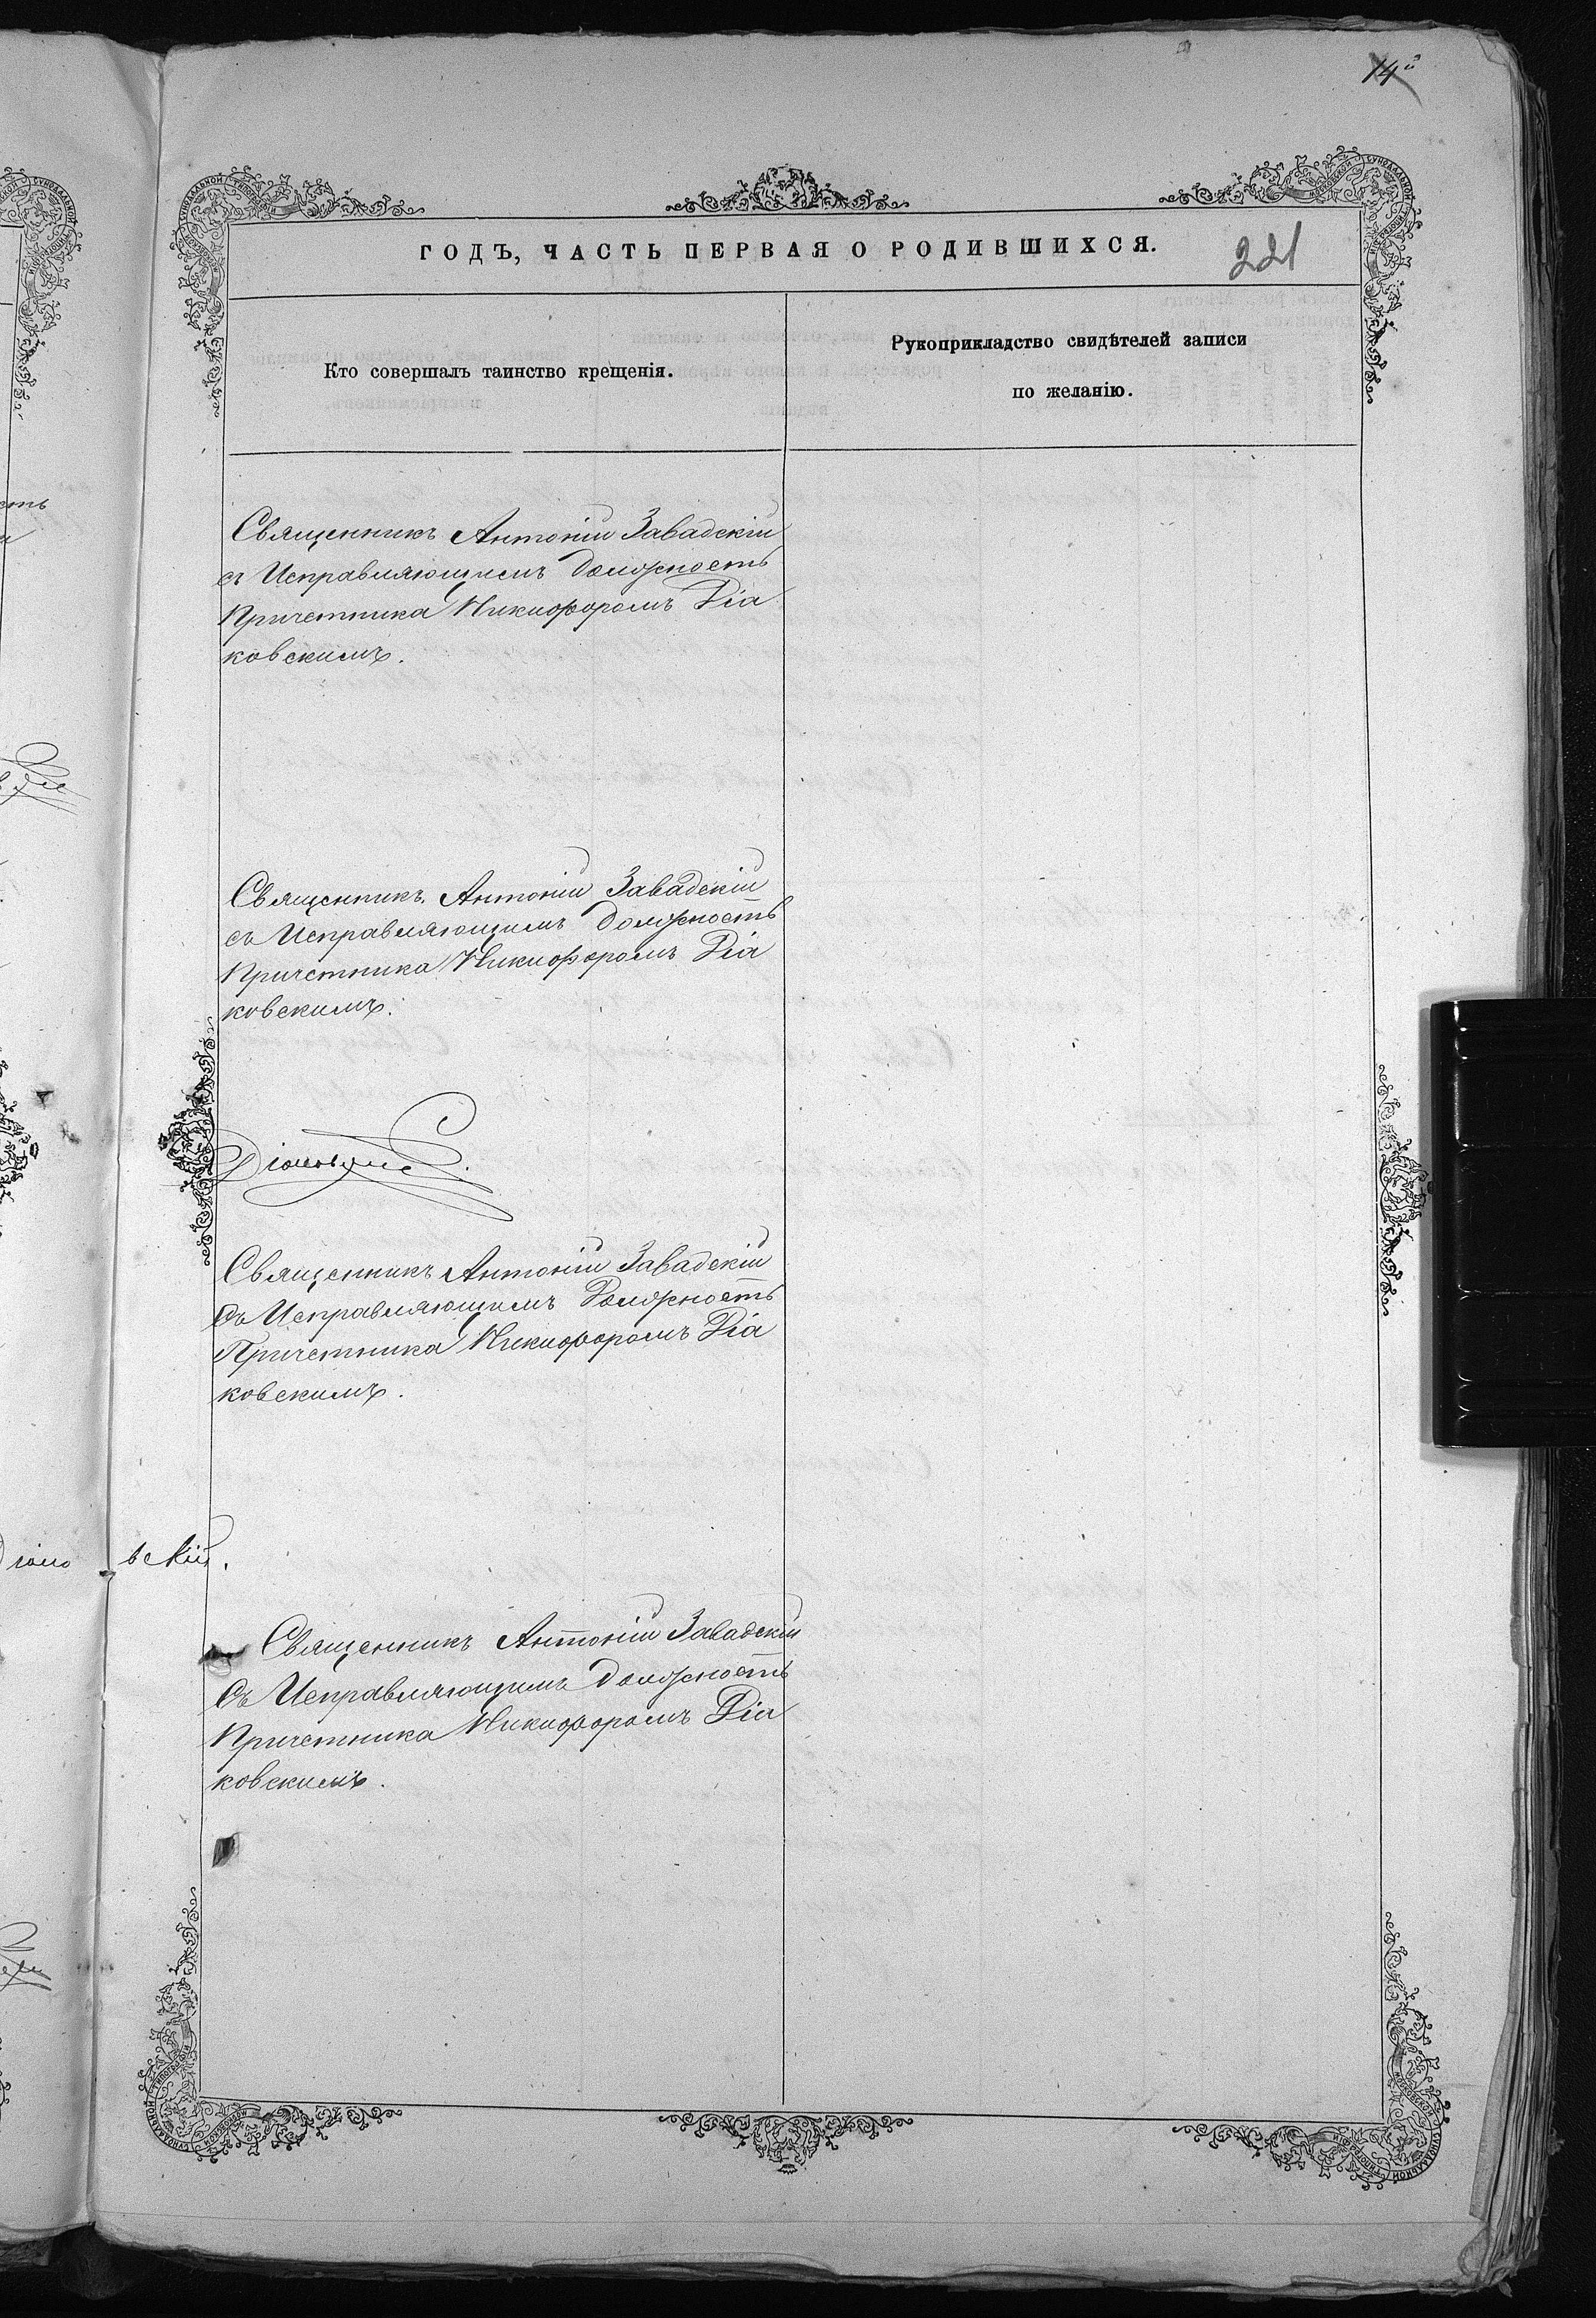 14
ГОДЪ, ЧАСТЬ ПЕРВАЯ О РОДИВШИХСЯ.
221
Кто совершалъ таинство крещенія.
Рукоприкладство свидѣтелей записи
по желанію.
Священникъ Антоній Завадскій
съ Исправляющимъ должность
Причетника Никифоромъ Діа
ковскимъ.
Священникъ Антоній Завадскій
съ Исправляющимъ должность
Причетника Никифоромъ Діа
ковскимъ.
Священникъ Антоній Завадскій
Съ Исправляющимъ Должность
Причетника Никифоромъ Діа
ковскимъ.
вскій.
Священникъ Антоній Завадскій
Съ Исправляющимъ должность
Причетника Никифоромъ Діа
ковскимъ.